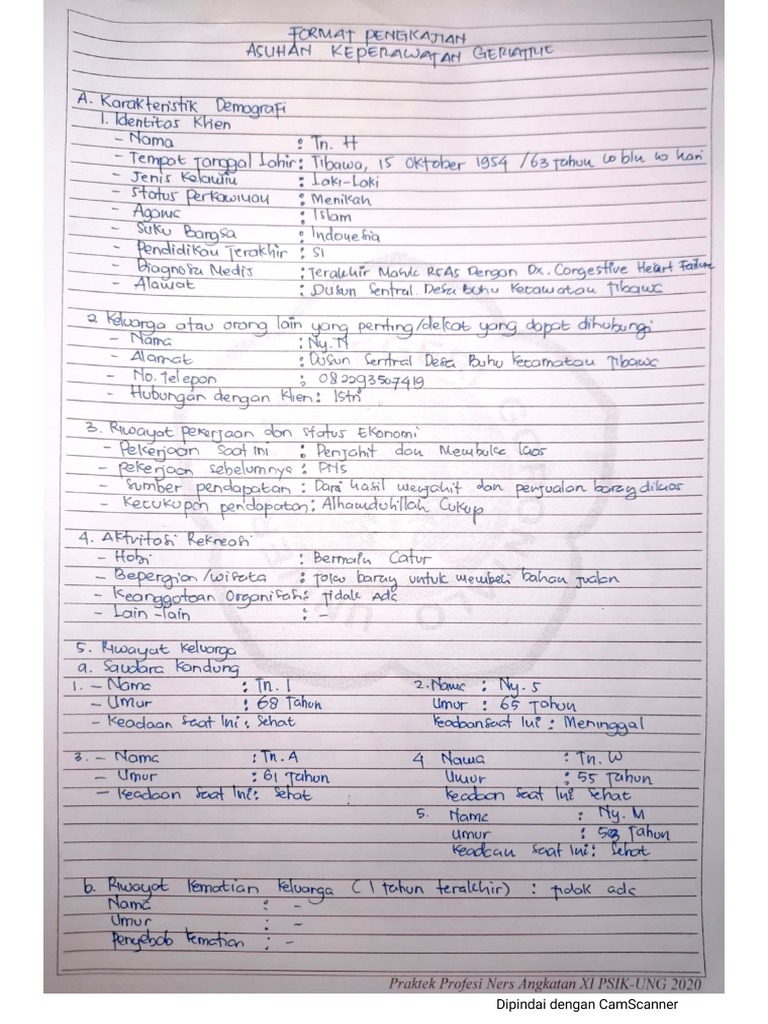 FORMAT PENGKAJIAN
ASUHAN KEPERAWATAN GERIATRIC
A. Karakteristik Demografi
1. Identitas Klien
- Nama : Tn. H
- Tempat Tanggal Lahir : Tibawa, 15 Oktober 1954 / 63 Tahun 10 bln 10 hari
- Jenis Kelamin : Laki-Laki
- Status Perkawinan : Menikah
- Agama : Islam
- Suku Bangsa : Indonesia
- Pendidikan Terakhir : S1
- Diagnosa Medis : Terakhir Masuk RSAS Dengan Dx. Congestive Heart Failure
- Alamat : Dusun Sentral. Desa Buhu Kecamatan Tibawa
2 Keluarga atau orang lain yang penting/dekat yang dapat dihubungi
- Nama : Ny. N
- Alamat : Dusun Sentral Desa Buhu Kecamatan Tibawa
- No. Telepon : 082293507419
- Hubungan dengan Klien : Istri
3. Riwayat pekerjaan dan status Ekonomi
- Pekerjaan Saat Ini : Penjahit dan Membuka kios
- pekerjaan sebelumnya : PNS
- Sumber pendapatan : Dari hasil menjahit dan penjualan barang dikios
- Kecukupan pendapatan : Alhamdulillah Cukup
4. Aktvitasi Rekreasi
- Hobi : Bermain Catur
- Bepergian/wisata : barang untuk membeli bahan jualan
- Keanggotaan Organisasi : Tidak Ada
- Lain-lain : -
5. Riwayat Keluarga
a. Saudara Kandung
1. - Nama : Tn. I 2. Nama : Ny. S
- Umur : 68 Tahun Umur : 65 Tahun
- Keadaan Saat Ini : Sehat Keadaan Saat Ini : Meninggal
3. - Nama : Tn. A 4 Nama : Tn. W
- Umur : 61 Tahun Umur : 55 Tahun
- Keadaan Saat Ini : Sehat Keadaan Saat Ini Sehat
5. Nama : Ny. M
Umur : Tahun
Keadaan Saat Ini : Sehat
b. Riwayat Kematian Keluarga (1 tahun terakhir) : tidak ada
Nama : -
Umur : -
Penyebab Kematian : -
Praktek Profesi Ners Angkatan XI PSIK-UNG 2020
Dipindai dengan CamScanner